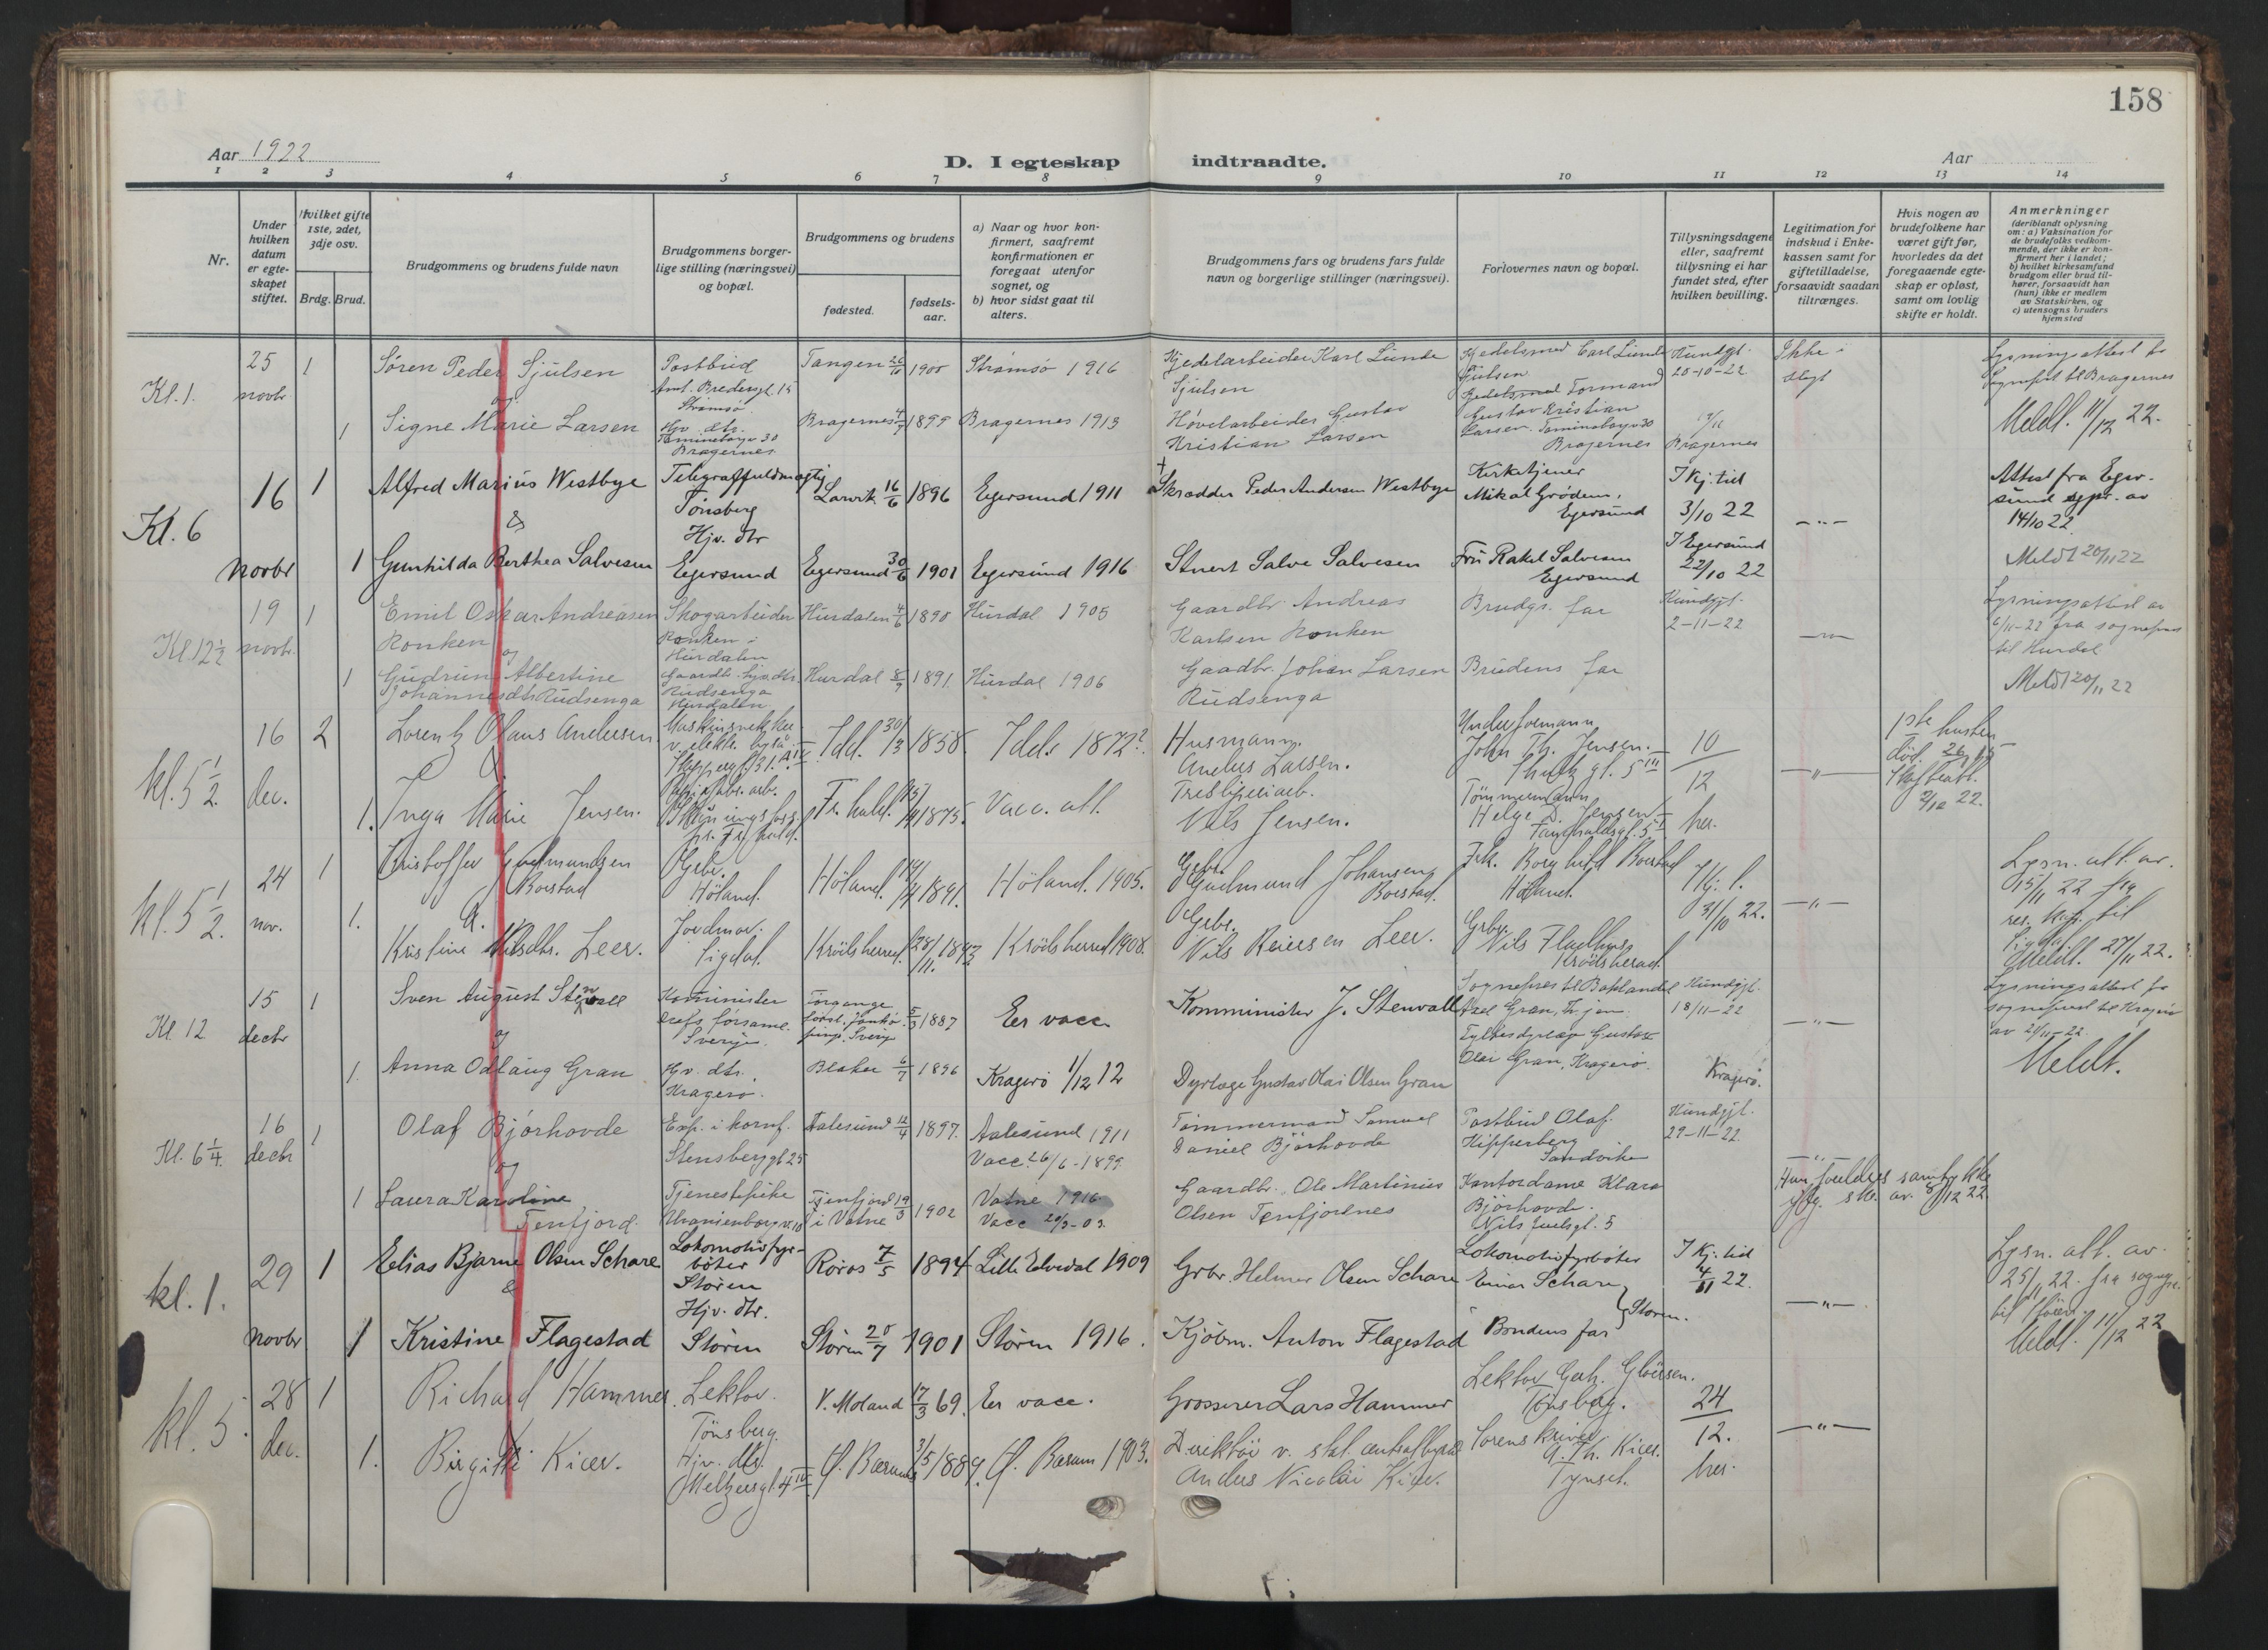 158
Aar 1922
D. I egteskap indtraadte.
Aar
1 2 3 4 5 6 7 8 9 10 11 12 13 14
Nr.
Under hvilken datum er egteskapet stiftet.
Hvilket gifte 1ste, 2det, 3dje osv.
Brdg. Brud.
Brudgommens og brudens fulde navn
Brudgommens borgerlige stilling (næringsvei) og bopæl.
Brudgommens og brudens
fødested.
fødselsaar.
a) Naar og hvor konfirmert, saafremt konfirmationen er foregaat utenfor sognet, og
b) hvor sidst gaat til alters.
Brudgommens fars og brudens fars fulde navn og borgerlige stillinger (næringsvei).
Forlovernes navn og bopæl.
Tillysningsdagene eller, saafremt tillysning ei har fundet sted, efter hvilken bevilling.
Legitimation for indskud i Enkekassen samt for giftetilladelse, forsaavidt saadan tiltrænges.
Hvis nogen av brudefolkene har været gift før, hvorledes da det foregaaende egteskap er opløst, samt om lovlig skifte er holdt.
Anmerkninger
(deriblandt oplysning om: a) Vaksination for de brudefolks vedkommende, der ikke er konfirmert her i landet; b) hvilket kirkesamfund brudgom eller brud tilhører, forsaavidt han (hun) ikke er medlem av Statskirken, og c) utensogns bruders hjemsted
Kl. 1.
25 novbr
1
Søren Peder Sjulsen
og
Postbud
Strømsø
Tangen 26/11 1900
Strømsø 1916
Kjedelarbeider Karl Lunde Sjulsen
Kundgjt. 20-10-22
Ikke i slegt
Lysningsattest fr Sognepr. til Bragernes
1
Signe Marie Larsen
Hjv. dtr.
Bragernes
Bragernes 4/7 1899
Bragernes 1913
Høvelarbeider Gustav Kristian Larsen
Gustav Kristian Larsen
Bragernes
Bragernes
Meldt. 11/12 22.
Kl. 6
16 novbr
1
Alfred Marius Westbye
&
Telegraffuldmægtig
Tønsberg
Larvik 16/6 1896
Egersund 1911
† Skrædder Peder Andersen Westbye
Kirketjener Mikal Grødem, Egersund
I Kj. tid 3/10 22
Attest fra Egersund sgpr. av 14/10 22
1
Gunhilda Berthea Salvesen
Hjv. dtr
Egersund
Egersund 30/6 1901
Egersund 1916
Stuert Salve Salvesen
Fru Rakel Salvesen Egersund
I Egersund 22/10 22
Meldt 20/11 22
Kl. 12 1/2
19 novbr.
1
Emil Oskar Andreasen Ronken
og
Skogarbeider
Ronken i Hurdalen
Hurdalen 4/6 1890
Hurdal 1905
Gaardbr. Andreas Karlsen Ronken
Brudgs. far
Kundgjt. 2-11-22
Lysningsattest av 6/11-22 fra sognepres til Hurdal
1
Gudrun Albertine Johannesdtr Rudsenga
Gaardbr. hjv. dtr.
Rudsenga Hurdalen
Hurdal 5/9 1891.
Hurdal 1906
Gaardbr. Johan Larsen Rudsenga
Brudens far
Meldt 20/11 22
kl. 5 1/2.
16 dec.
2
Lorentz Olaus Andersen
&
Idd. 30/3 1858.
Idd. 1872?
Husmann. Anders Larsen.
John Th. Jensen.
10/12
her.
1ste hustru død.
1.
Inga Marie Jensen.
Fr.hald. 1875.
Vacc. att.
Nils Jensen.
Tømmermann Helge D. Jensen
kl. 5 1/2.
24 nov.
1
Kristoffer Gudmundsen Borstad
&
Gbr. Høland.
Høland. 1891.
Høland. 1905.
Gbr. Gudmund Johansen Borstad.
Frk. Borghild Borstad Høland.
I Kj. t. 31/10 22.
Lysn. att. av. 15/11 22 fra res. kap. til Sigdal
1.
Kristine Nilsdtr. Leer.
Jordmor. Sigdal.
Krødsherred. 28/11. 1893
Krødsherred 1908.
Gbr. Nils Reiersen Leer.
Gbr. Nils Krødsherad.
Meldt. 27/11 22.
Kl 12
15 decbr
1
Sven August Stenvall
og
Komminister
Sverige.
1887
Er vacc.
Komminister J. Stenvall
Kundgjt. 18/11-22
Lysningsattest fr sognepres til Kragerø av 21/11-22.
1.
Anna Odlaug Gran
Hjv. dtr. Kragerø.
Blaker 6/7 1896
Kragerø 1/12 12
Dyrlæge Gustav Olai Olsen Gran
Olai Gran, Kragerø.
Kragerø.
Meldt.
Kl. 6 1/4.
16 decbr
1
Olaf Bjórhovde
og
Exp. i kornf.
Stensberggt 25
Aalesund 12/4 1897.
Aalesund 1911
Vacc. 26/6-1899.
Tømmermand Samuel Daniel Bjørhovde
Postbud Olaf Kipperberg Sandvika
Kundgjt. 29-11-22.
1
Laura Karoline Tenfjord
Tjenestepike
Uranienborgv. 18
Tjenfjord i Vatne 19/3 1902
Vatne 1916
Vacc 20/3-03.
Gaardbr. Ole Martinius Olsen Tenfjordnes
Kontordame Klara Bjørhovde. Nils Juelsgt. 5
Hun forældres samtykke
kl. 1.
29 novbr
1
Elias Bjarne Olsen Schare
&
Lokomotivfyrbøter
Støren
Røros 7/5 1894
Lille Elvedal 1909
Grbr. Helmer Olsen Schare
Lokomotivfyrbøter Einar Schare
Støren.
I Kj. tid 4/11 22.
Lysn. att. av. 25/11 22. fra sognepr. til Støren
1
Kristine Flagestad
Hjv. dtr.
Støren
Støren 20/7 1901
Støren 1916.
Kjøbm. Anton Flagestad
Brudens far
Meldt. 11/12 22
kl. 5.
28 dec.
1
Richard Hammer.
Lektor. Tønsberg.
V. Moland 17/3 69.
Er vacc.
Grosserer Lars Hammer
Lektor Gerh. Gløersen. Tønsberg.
24/12.
her.
1.
Birgitte Kiær.
Hjv. dtr.
Meltzersgt 4 IV
Ø. Bærum 3/5 1889.
Ø. Bærum 1903.
Direktør v. stat. centralbyrå Anders Nicolai Kiær.
Sorenskriver A. Th. Kiær. Tynset.